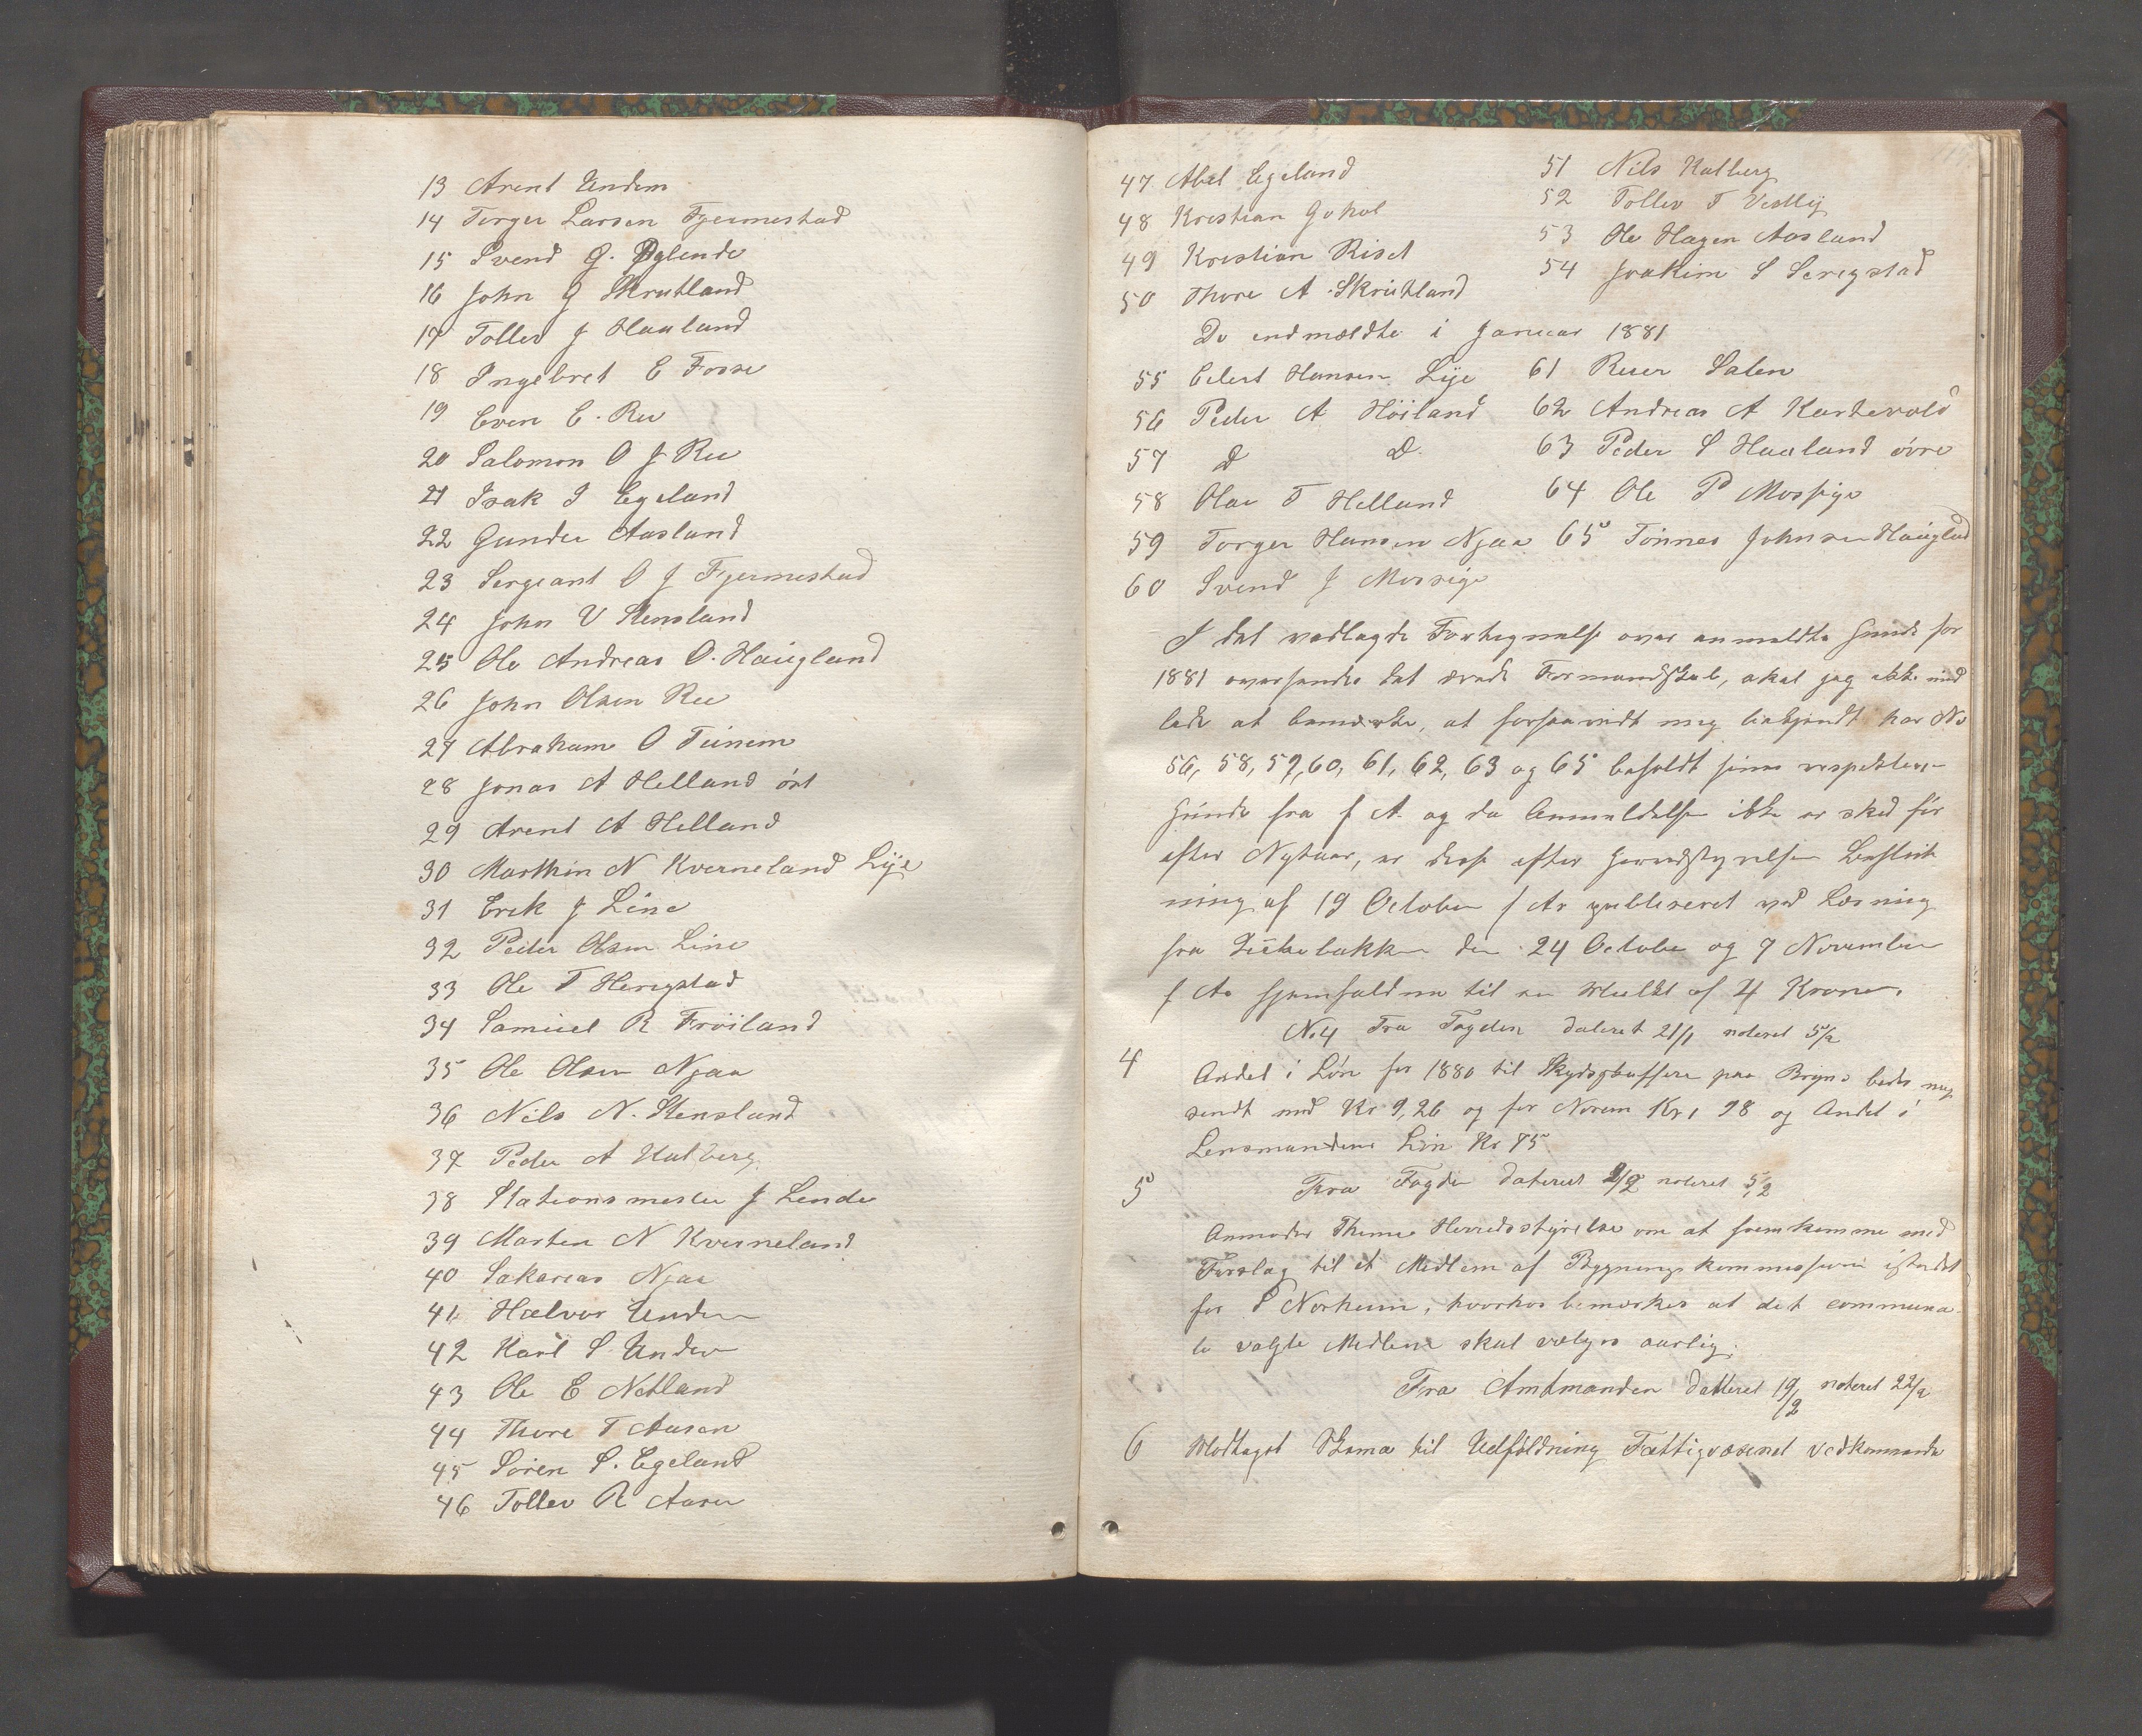 13 Arent Undem
14 Torger Larsen Fjermestad
15 Svend G. Øglende
16 John G Skrutland
17 Tollev J Haaland
18 Ingebret E Fosse
19 Even E. Ree
20 Salomon O J Ree
21 Isak I Egeland
22 Gunder Aasland
23 Sergeant O J Fjermestad
24 John V Stensland
25 Ole Andreas O. Haugland
26 John Olsen Ree
27 Abraham O Tunem
28 Jonas A Helland øst
29 Arent A Helland
30 Marthin N Kverneland Lye
31 Erik J Line
32 Peder Olsen Line
33 Ole T Herigstad
34 Samuel R Frøiland
35 Ole Olsen Njaa
36 Nils N. Stensland
37 Peder A Kalberg
38 Stationsmester J Lende
39 Marten N Kverneland
40 Sakarias Njaa
41 Halvor Undem
42 Karl S Undem
43 Ole E Netland
44 Thore T Aasen
45 Søren S. Egeland
46 Tollev R Aasen
47 Abel Egeland
48 Kristian
49 Kristian Riset
50 Thore A Skrutland
51 Nils Kalberg
52 Tollev T Vestly
53 Ole Hagen Aasland
54 Joakim S Serigstad
De indmældte i Januar 1881
55 Eilert Hansen Lye
56 Peder A Høiland
57 D D
58 Olav T Helland
59 Torger Hansen Njaa
60 Svend J Mossige
61 Reier Salen
62 Andreas A Kartevold
63 Peder S Haaland øvre
64 Ole P Mossige
65 Tønnes Johnsen Hauglnd
I det vedlagde Fortegnelse over anmeldte Hunde for
1881 oversendes det ærede Formandskab, skal jeg ikke und
lade at bemærke, at forsaavidt mig bekjendt har No
56, 58, 59, 60, 61, 62, 63 og 65 beholdt sine respektive
Hunde fra f A. og da Anmeldelse ikke er sked før
efter Nytaar, er disse efter Herredstyrelsens Beslut
ning af 19 October f Ar publiseret ved Læsning
fra Kirkebakken den 24 October og 7 November
f Ar hjemfaldne til en Mulkt af 4 Kroner.
No 4 Fra Fogden dateret 21/1 noteret 5/2
4 Andel i Løn for 1880 til Skydsskaffere paa Bryne bedes neg
sendt med Kr 9,26 og for Norem Kr 1 98 og Andel i
Lensmandens Løn Kr 75
5 Fra Fogden dateret 2/2 noteret 5/2
Anmodes Thime Herredsstyrelse om at fremkomme med
Forslag til et Medlem af Bygningskommissionen istedet
for S Norheim, hvorhos bemærkes at det communa
le valgte Medlem skal vælges aarlig.
Fra Amtmanden datteret 19/2 noteret 22/2
6 Modtaget Skema til Udfyldning Fattigvæsenet vedkommende